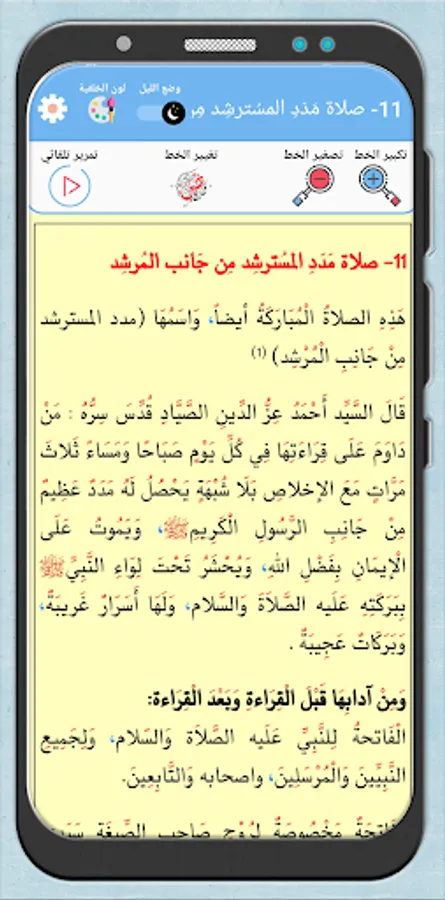 لون الخلفية
وضع الليل
11- صلاة مَدَدِ المسْترشِد مِن
تكبير الخط
تصغير الخط
تغيير الخط
تمرير تلقائي
11- صلاة مَدَدِ المسْترشِد مِن جَانب المُرشِد
هَذِهِ الصلاةُ الْمُبَارَكَةُ أيضاً، وَاسَمُهَا (مدد المسترشد
مِنْ جَانِبِ الْمُرْشِد) (1)
قَالَ السَّيِّد أَحْمَدُ عِزُّ الدِّينِ الصَّيَّادِ قُدِّسَ سِرُّهُ : مَنْ
دَاوَمَ عَلَى قِرَاءَتِهَا فِي كُلِّ يَوْمٍ صَبَاحًا وَمَسَاءً ثَلَاثَ
مَرَّاتٍ مَعَ الإخلاصِ بَلَا شُبْهَةٍ يَحْصُلُ لَهُ مَدَدٌ عَظِيمٌ
مِنْ جَانِبِ الرَّسُولِ الْكَرِيمِ ﷺ، وَيَمُوتُ عَلَى
الْإِيمَانِ بِفَضْلِ اللهِ، وَيُحْشَرُ تَحْتَ لِوَاءِ النَّبِيِّ ﷺ
بِبَرَكَتِهِ عَلَيه الصَّلاَةَ وَالسَّلام، وَلَهَا أَسْرَارٌ غَرِيبَةٌ،
وَبَرَكَاتٌ عَجِيبَةٌ .
وَمِنْ آدابِهَا قَبْلَ الْقِرَاءةِ وَبَعْدَ الْقِرَاءة:
الْفَاتحةُ لِلنَّبِيِّ عَلَيه الصَّلاَة وَالسَلام، وَلِجَمِيعِ
النَّبِيِّينَ وَالْمُرْسَلِينَ، واصحابه وَالتَّابِعِينَ.
مَخْصُوصَةٌ لِرُوْحِ صَاحِبِ الصِّيغَةِ